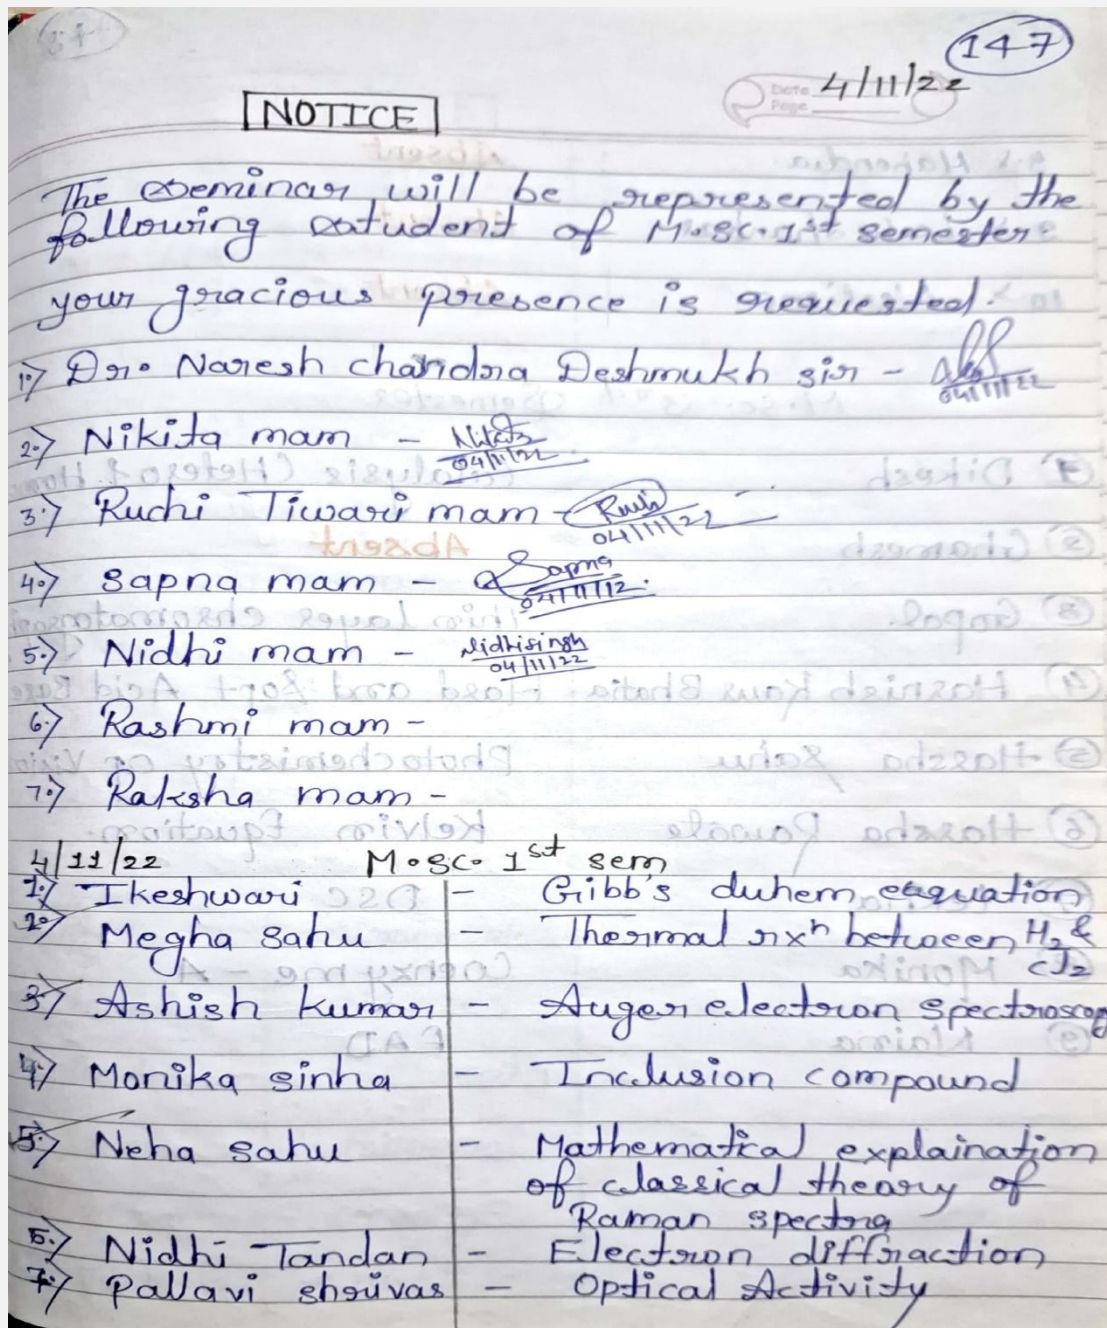 147
Date 4/11/22
Page
NOTICE
The seminar will be represented by the
following student of M.sc. 1st semester
your gracious presence is requested.
1.) Dr. Naresh chandra Deshmukh sir - 04/11/22
2.) Nikita mam - Nikita 04/11/22
3.) Ruchi Tiwari mam - Ruchi 04/11/22
4.) Sapna mam - Sapna 04/11/12.
5.) Nidhi mam - Nidhisingh 04/11/22
6.) Rashmi mam -
7.) Raksha mam -
4/11/22 M.sc. 1st sem
1.) Ikeshwari - Gibb's duhem equation
2.) Megha sahu - Thermal rxn between H2 &
cl2
3.) Ashish kumar - Auger electron spectroscopy
4.) Monika sinha - Inclusion compound
5.) Neha sahu - Mathematical explaination
of classical theory of
Raman spectra
6.) Nidhi Tandan - Electron diffraction
7.) Pallavi shrivas - Optical Activity